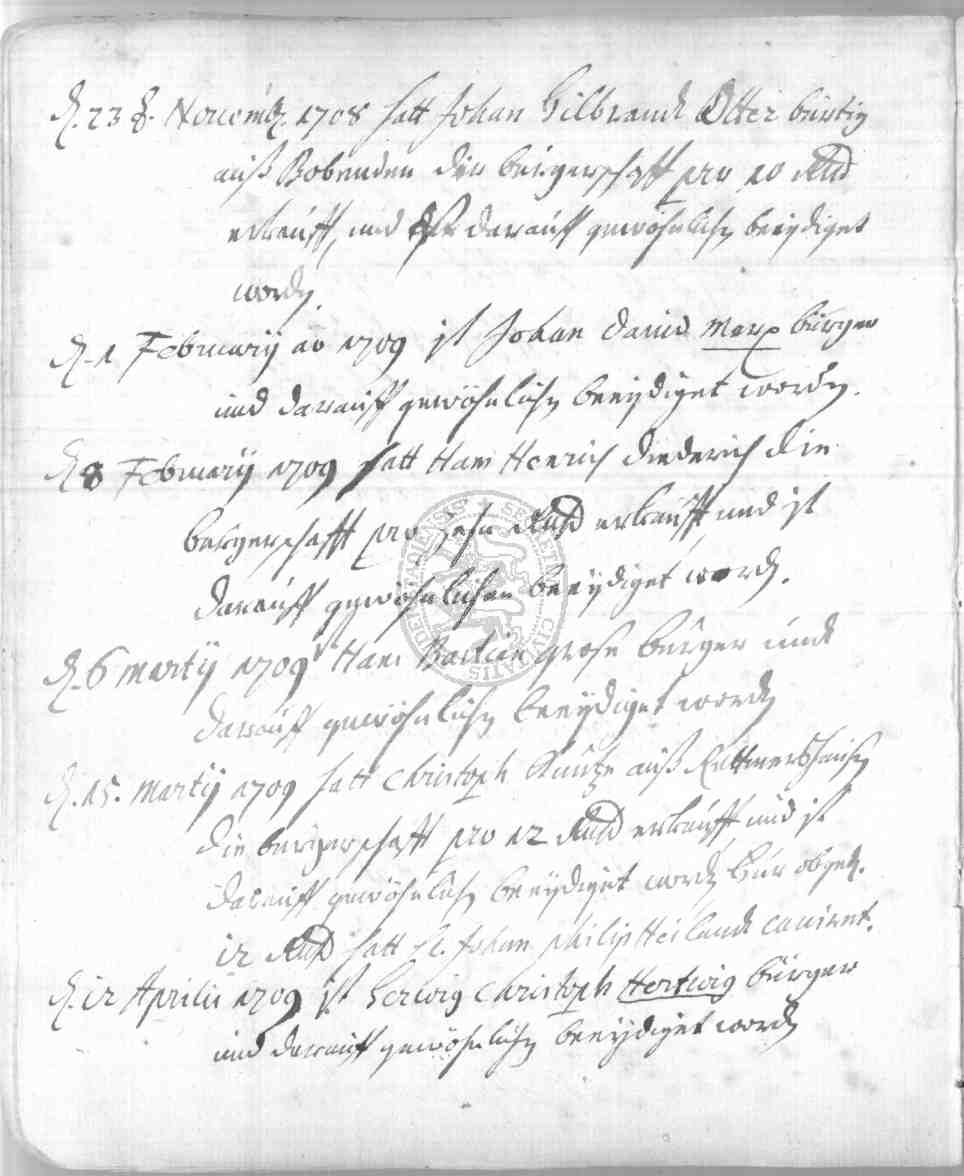 d. 23 8. Novemb. 1708 hatt Johan Hilbrandt Otter bürtig
auß Bobenden die bürgerschafft pro 10 Rthlr
erkaufft, und ist darauff gewöhnlichen beeydiget
worden.
d. 1 February ao 1709 ist Johan David Marx bürger
und darauff gewöhnlichen beeydiget worden.
d. 8 February 1709 hatt Hans Henrich Diederich die
bürgerschafft pro zehn Rthlr erkaufft und ist
darauff gewöhnlichen beeydiget word.
d. 6 Martij 1709 Hans grose bürger undt
darauff gewöhnlichen beeydiget worden
d. 15. Martij 1709 hatt Christoph Kuntze auß Rettmershausen
die bürgerschafft pro 12 Rthlr erkaufft und ist
darauff gewöhnlichen beeydiget worden für obged.
12 Rthlr hatt H. Johan Philip Heilandt caviret.
d. 12 Aprilis 1709 ist Herwig Christoph Hertwig bürger
und darauff gewöhnlichen beeydiget worden